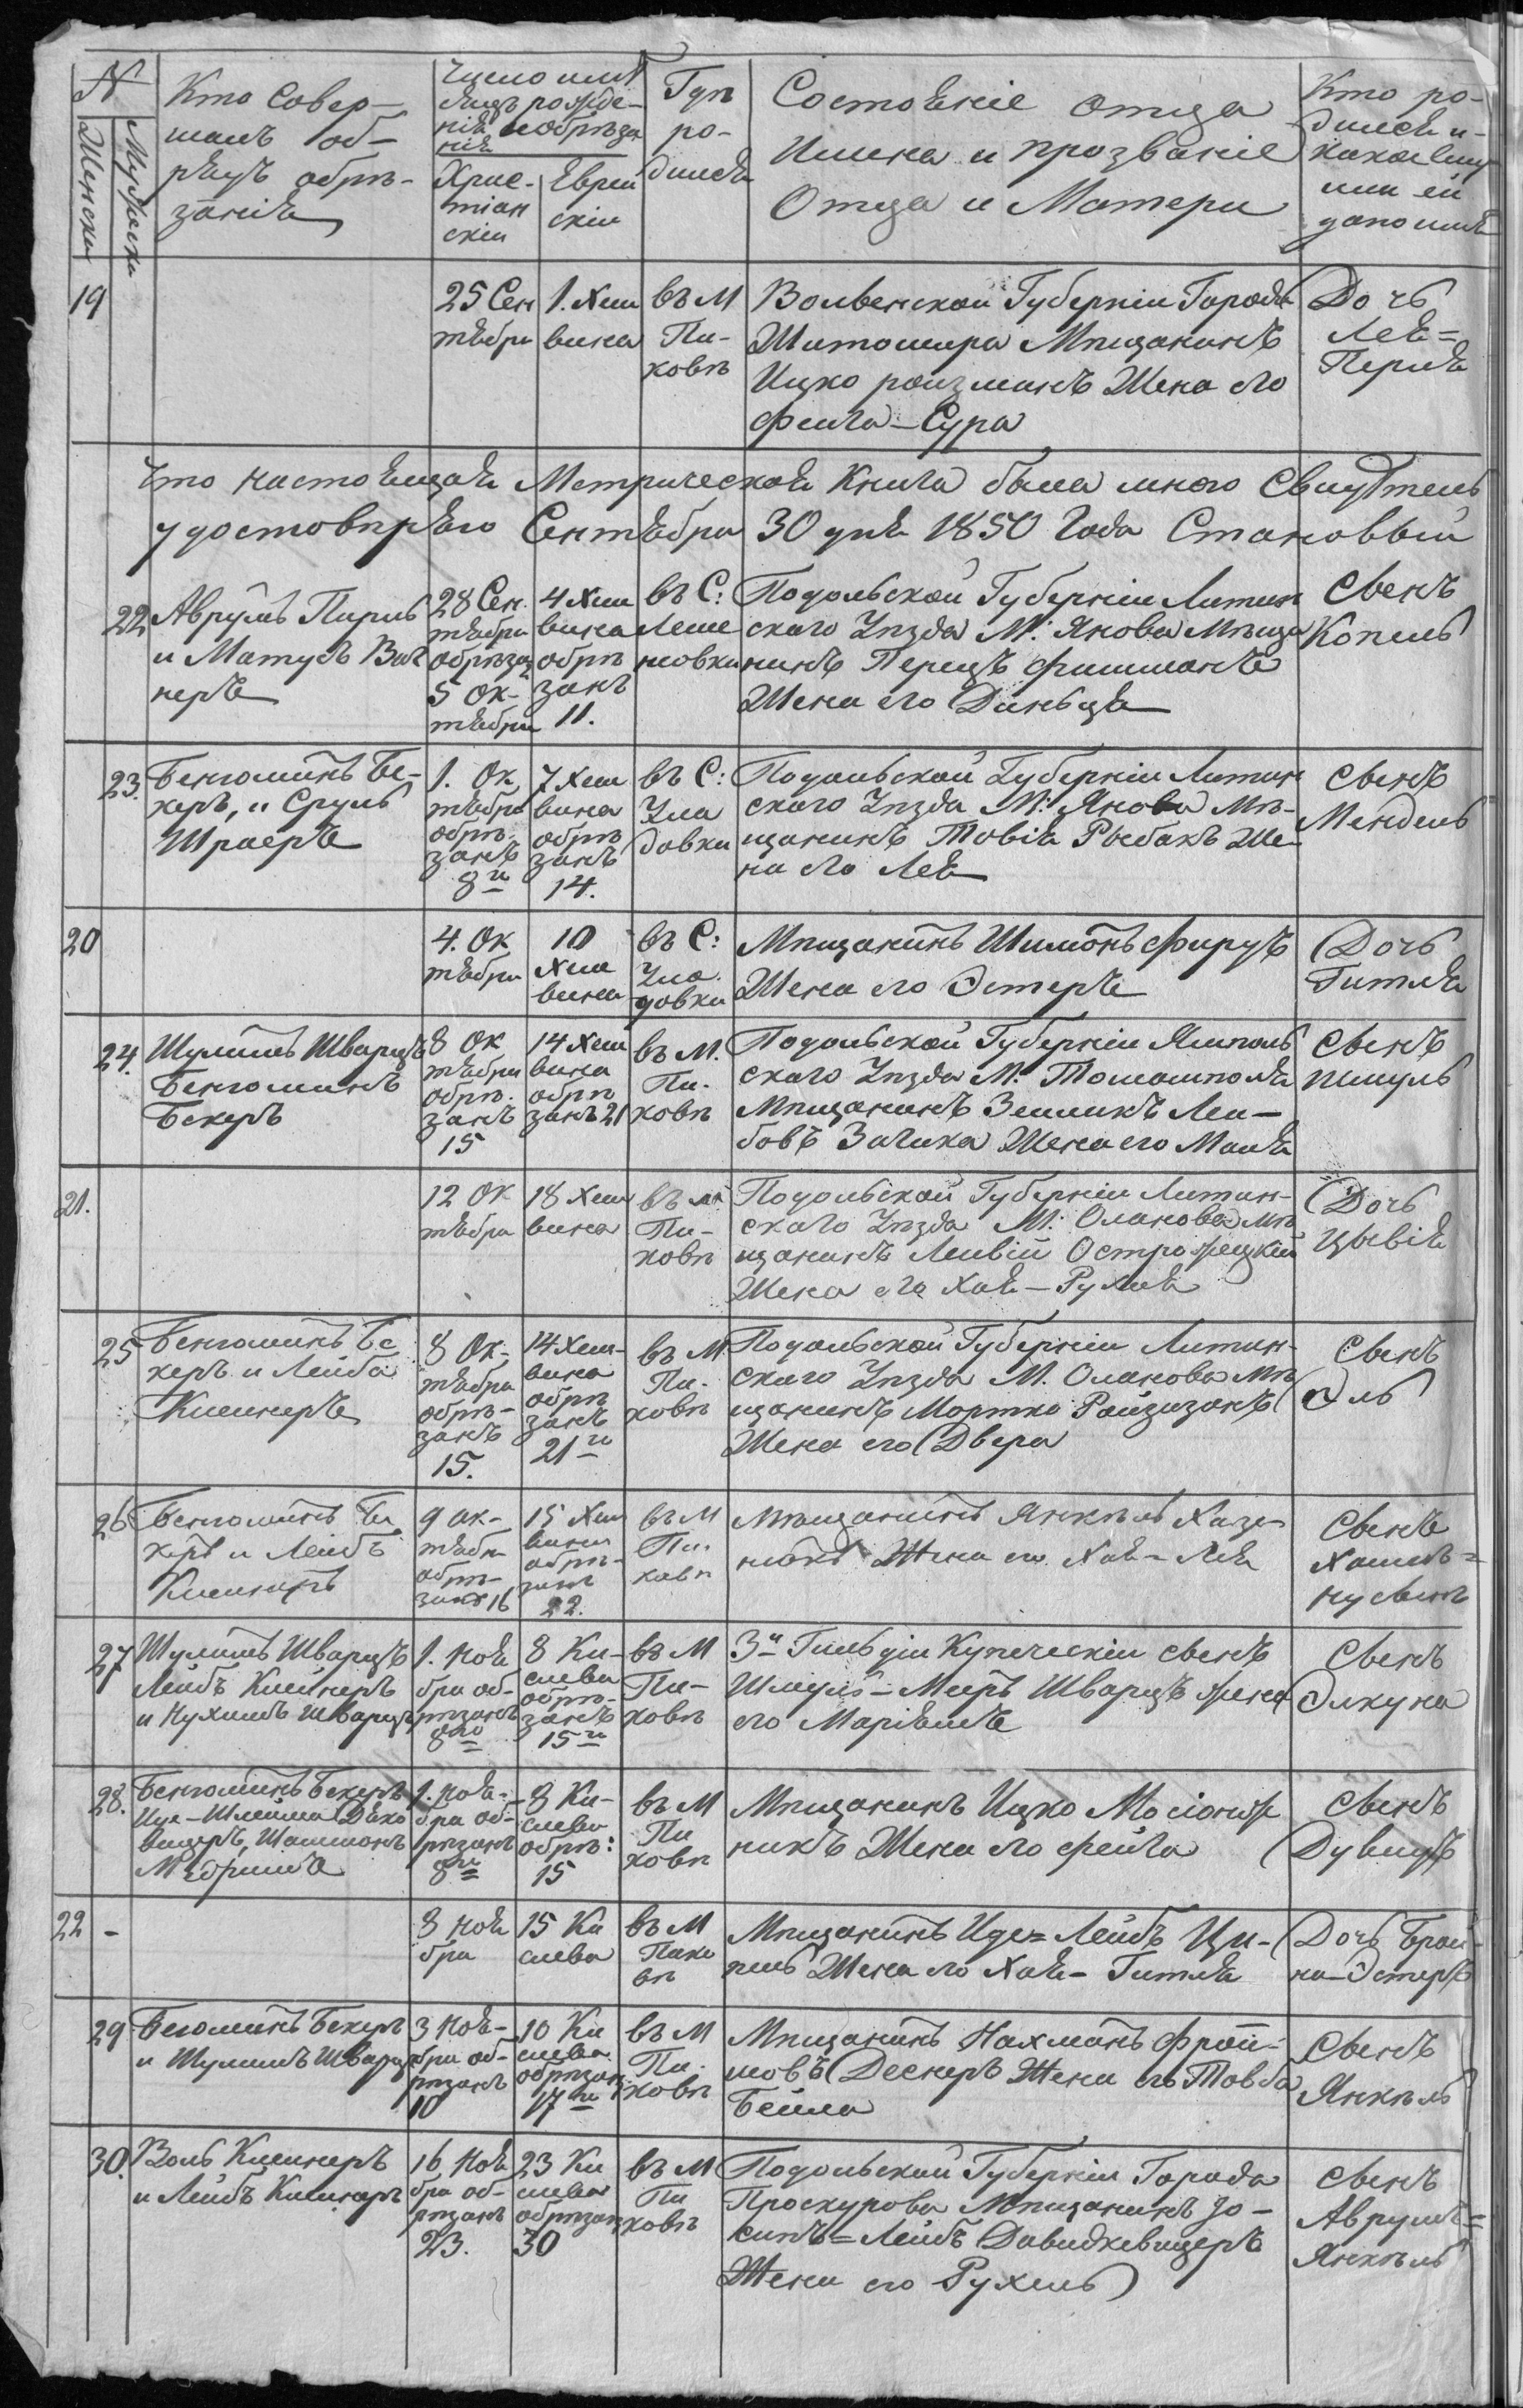 № Женски Мужески
Кто Совер-
шалъ об-
рядъ обрѣ-
занія
Число и мѣ
сяцъ рожде-
нія и обрѣза
нія
Хрис-
тіан
скіи
Еврей
скіи
Гдѣ
ро-
дился
Состояніе отца
Имена и прозваніе
Отца и Матери
Кто ро-
дился и
какое ему
или ей
дано имя
19
25 Сен
тября
1. Хеш
вина
въ М
Пи-
ковѣ
Волынской Губерніи Города
Житомира Мѣщанинъ
Ицко Роизманъ Жена его
Фейга-Сура
Дочь
Лея=
Перля
Что настоящая Метрическая Книга была мною Свидѣтель
удостовѣряю Сентября 30 дня 1850 Года Становый
22
Аврумъ Пирис
и Матусъ Ваи
неръ
28 Сен.
тября
обрѣза
5 Ок-
тября
4 Хеш
вина
обрѣ
занъ
11.
въ С:
Леме
шовки
Подольской Губерніи Литин
ского Уѣзда М: Янова Мѣща
нинъ Перецъ Фишманъ
Жена его Диньця
Сынъ
Копель
23.
Бенгоминъ Бе-
керъ, и Сруль
Шраеръ
1. Ок
тября
обрѣ-
занъ
8го
7 Хеш
вина
обрѣ
занъ
14.
въ С:
Ула
довки
Подольской Губерніи Литин
ского Уѣзда М: Янова Мѣ-
щанинъ Товія Рыбакъ Же-
на его Лея
Сынъ
Мендель
20
4. Ок
тября
10
Хеш
вина
въ С:
Ула.
довки
Мѣщанинъ Шимонъ Фирузъ
Жена его Эстеръ
Дочь
Гитля
24.
Шулимъ Шварцъ
Бенгоминъ
Бекеръ
8 Ок
тября
обрѣ.
занъ
15
14 Хеш
вина
обрѣ
занъ 21
въ М.
Пи-
ковѣ
Подольской Губерніи Ямполь
ского Уѣзда М: Томашполя
Мѣщанинъ Зейликъ Лей-
бовъ Зачика Жена его Маля
Сынъ
Шмуль
21.
12 Ок
тября
18 Хеш
вина
въ М
Пи-
ковѣ
Подольской Губерніи Литин-
ского Уѣзда М: Уланова мѣ
щанинъ Лейвій Острожецкій
Жена его Хая-Рухля
Дочь
Цывія
25
Бенгоминъ Бе
керъ и Лейба
Клейнеръ
8 Ок-
тября
обрѣ-
занъ
15.
14 Хеш-
вина
обрѣ
занъ
21го
въ М
Пи-
ковѣ
Подольской Губерніи Литин-
ского Уѣзда М. Уланова Мѣ
щанинъ Мортко Ройзизанъ
Жена его Двера
Сынъ
Эль
26
Бенгоминъ Бе
керъ и Лейбъ
Клейнеръ
9 ок-
тября
обрѣ-
занъ 16
15 Хеш
вина
обрѣ-
занъ
22.
въ М
Пи-
ковѣ
Мѣщанинъ Янкель Хазе-
Жена его Хая-Лея
Сынъ
Хаимъ=
Нусынъ
27
Шулимъ Шварцъ
Лейбъ Клейнеръ
и Нухимъ Шварцъ
1. Ноя
бря об-
рѣзанъ
8го
8 Ки-
слева
обрѣ-
занъ
15го
въ М
Пи-
ковѣ
3й Гильдіи Купеческій сынъ
Шмуль-Мееръ Шварцъ Жена
его Маріямъ
Сынъ
Элкуна
28.
Бенгоминъ Бекеръ
Ице-Шлейма Давид
Медришъ
1. ноя-
бря об-
рѣзанъ
8го
8 Ки-
слева
обрѣ:
15
въ М
Пи
ковѣ
Мѣщанинъ Ицко Масіонж
никъ Жена его Фейга
Сынъ
Дувидъ
22 -
8 ноя
бря
15 Ки
слева
въ М
Пико
вѣ
Мѣщанинъ Иде=Лейбъ Ци-
пель Жена его Хая-Гитля
Дочь Брай-
на-Эстеръ
29
Бегоминъ Бекеръ
и Шулимъ Шварцъ
3 ноя-
бря об-
рѣзанъ
10
10 Ки
слева
обрѣзан
17го
въ М
Пи-
ковѣ
Мѣщанинъ Нахманъ Фрой-
мовъ Деснеръ Жена его Товба
Бейла
Сынъ
Янкель
30.
Воль Клейнеръ
и Лейбъ Клейнеръ
16 Ноя
бря об-
рѣзанъ
23.
23 Ки
слева
обрѣзан
30
въ М
Пи
ковѣ
Подольской Губерніи Города
Проскурова Мѣщанинъ Іо-
сипъ=Лейбъ Давидкевицеръ
Жена его Рухель
Сынъ
Аврумъ=
Янкель